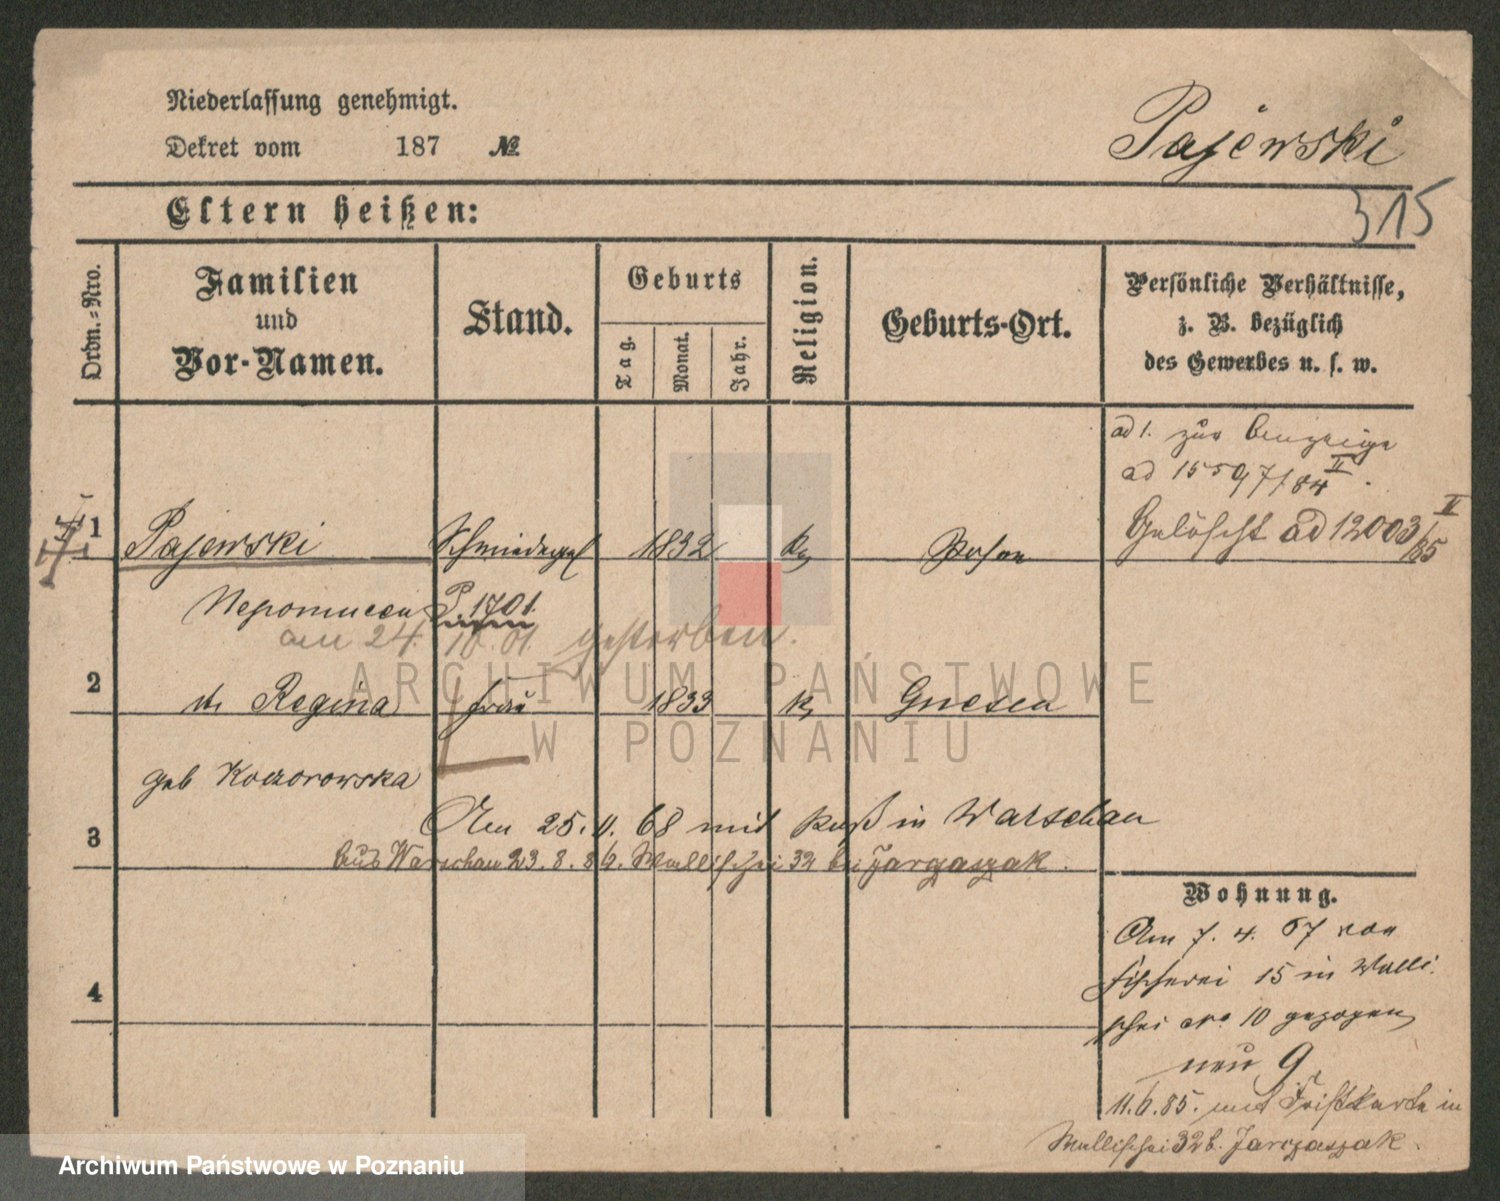 Niederlassung genehmigt.
Dekret vom 187 №
Pajewski
315
Eltern heißen:
Ordn.-Nro.
Familien
und
Vor-Namen.
Stand.
Geburts
Tag.
Monat.
Jahr.
Religion.
Geburts-Ort.
Persönliche Verhältnisse,
z. B. bezüglich
des Gewerbes u. s. w.
ad 1. zur
ad 15597/84 II
Gelöscht ad 12003/85 II
1 Pajewski 1832 k Posen
Nepomucen P 1701.
am 24. 10. 01. gestorben.
2 Regina Frau 1833 k Gnesen
geb Koczorowska
3
Am 25. 11. 68 mit Paß in Warschau
aus Warschau 23. 8. 84. Wallischei 32 bei Jarzaszak.
4
Wohnung.
Am 7. 4. 67 von
Fischerei 15 in Walli
schei No 10 gezogen
neu 9
11.6.85. mit Fristkarte in
Wallischei 32 b. Jarzaszak.
ARCHIWUM PAŃSTWOWE
W POZNANIU
Archiwum Państwowe w Poznaniu